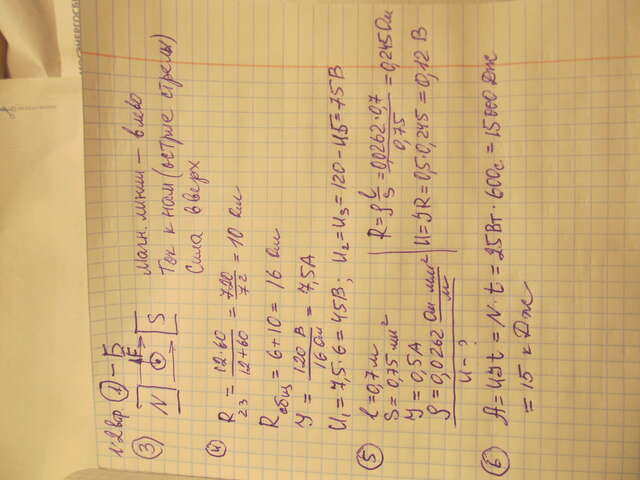 МОСЭНЕРГОСБ
1-2 вар ① - Б
③ F N S Магн. линии — влево
Ток к нам (острие стрелы)
Сила вверх
④ R₂₃ = 12·60 / 12+60 = 720 / 72 = 10 Ом
Rобщ = 6+10 = 16 Ом
У = 120 В / 16 Ом = 7,5А
U₁ = 7,5·6 = 45В; U₂ = U₃ = 120 - 45 = 75В
⑤ l = 0,7 м
S = 0,75 мм²
У = 0,5А
ρ = 0,0262 Ом мм² / м
U - ?
R = ρ l/S = 0,0262·0,7 / 0,75 = 0,245 Ом
U = УR = 0,5·0,245 = 0,12 В
⑥ A = UУt = N·t = 25Вт·600с = 15000 Дж
= 15 кДж